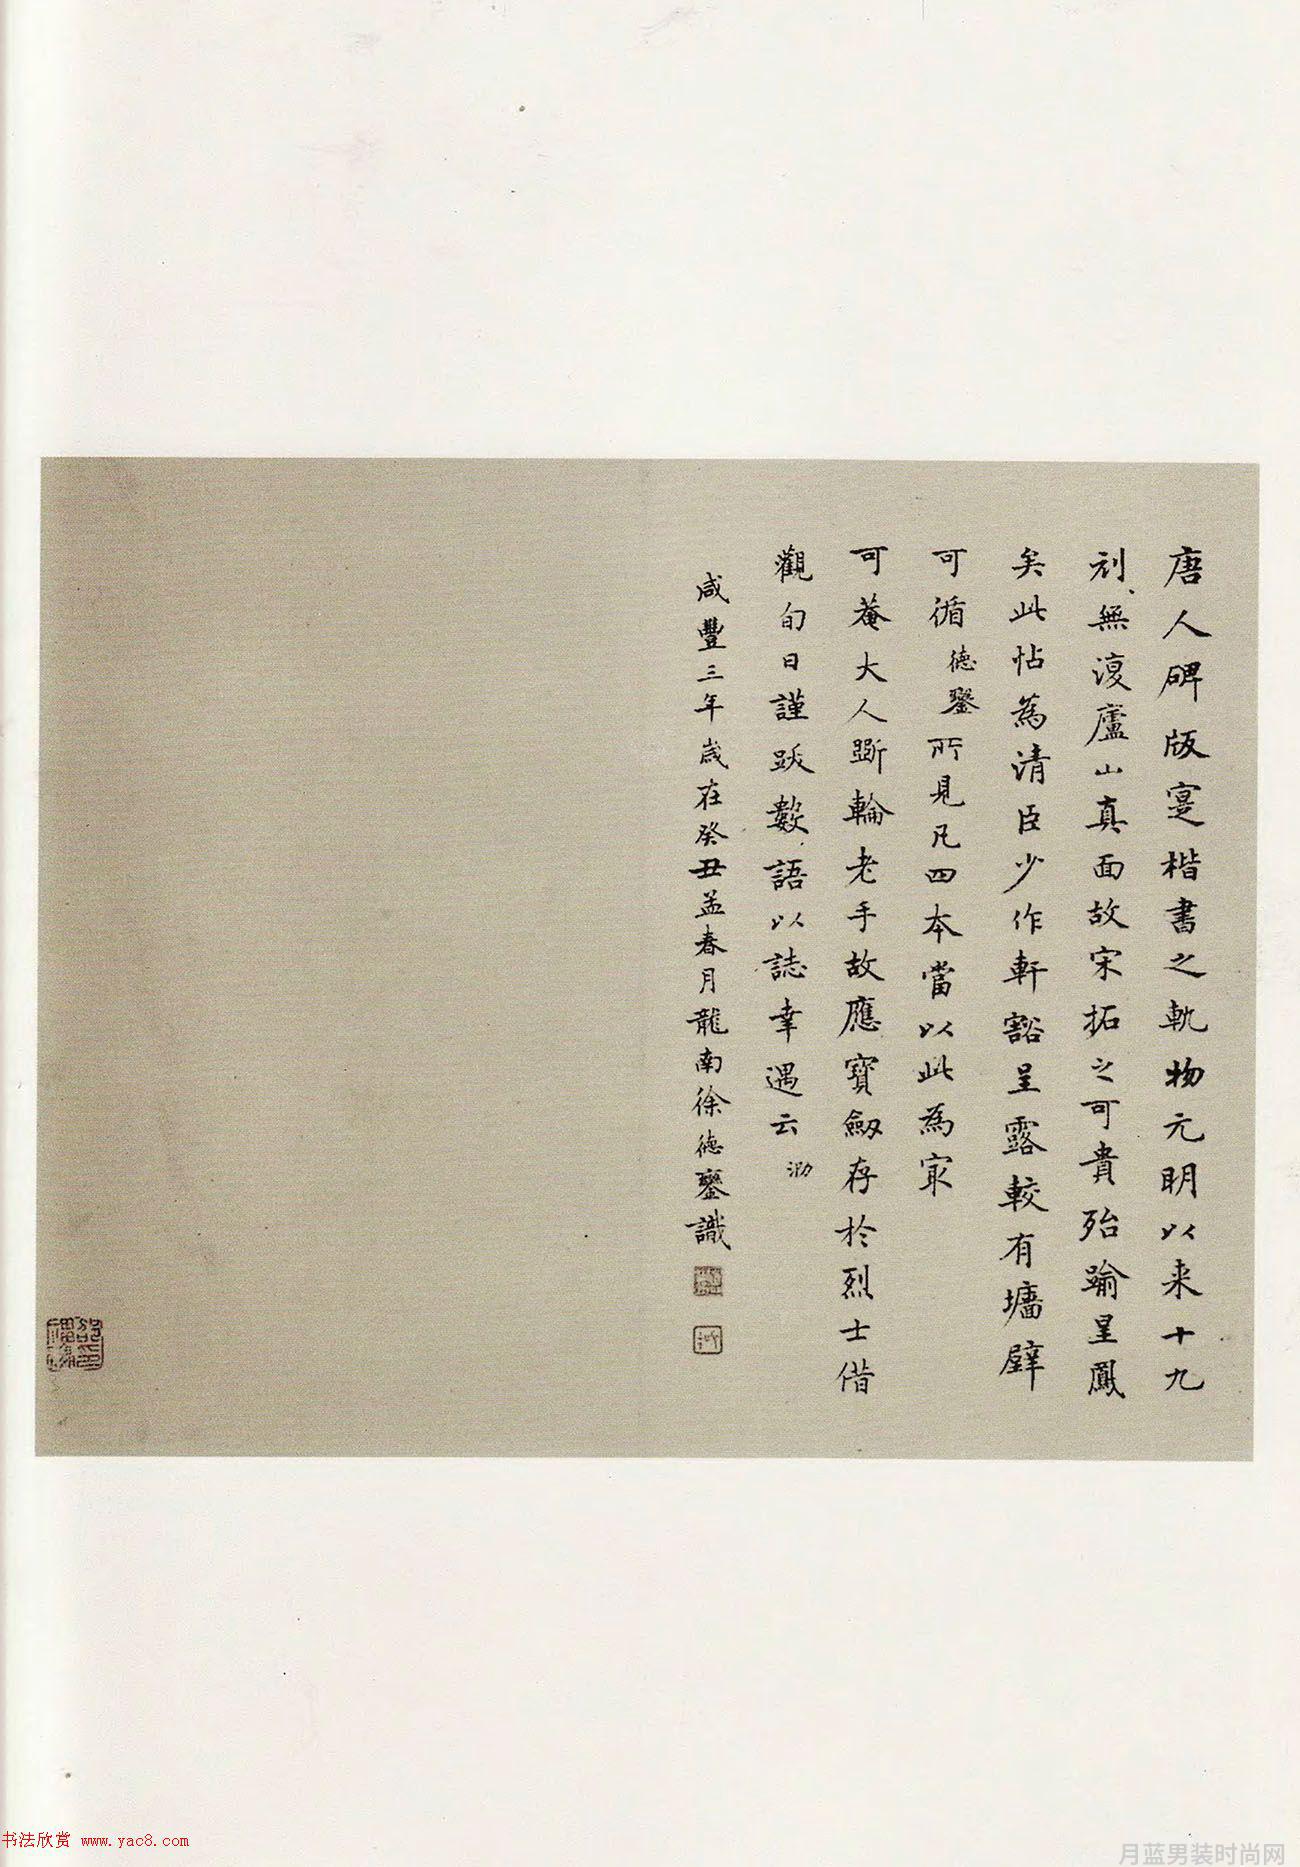 唐人碑版寔楷書之軌物元明以来十九
刓無復廬山真面故宋拓之可貴殆踰星鳳
矣此帖為清臣少作軒豁呈露較有墻壁
可循德鋆所見凡四本當以此為冣
可菴大人斲輪老手故應寶劔存於烈士借
觀旬日謹跋數語以誌幸遇云泐
咸豐三年歲在癸丑孟春月龍南徐德鋆識
书法欣赏 www.yac8.com
月蓝男装时尚网